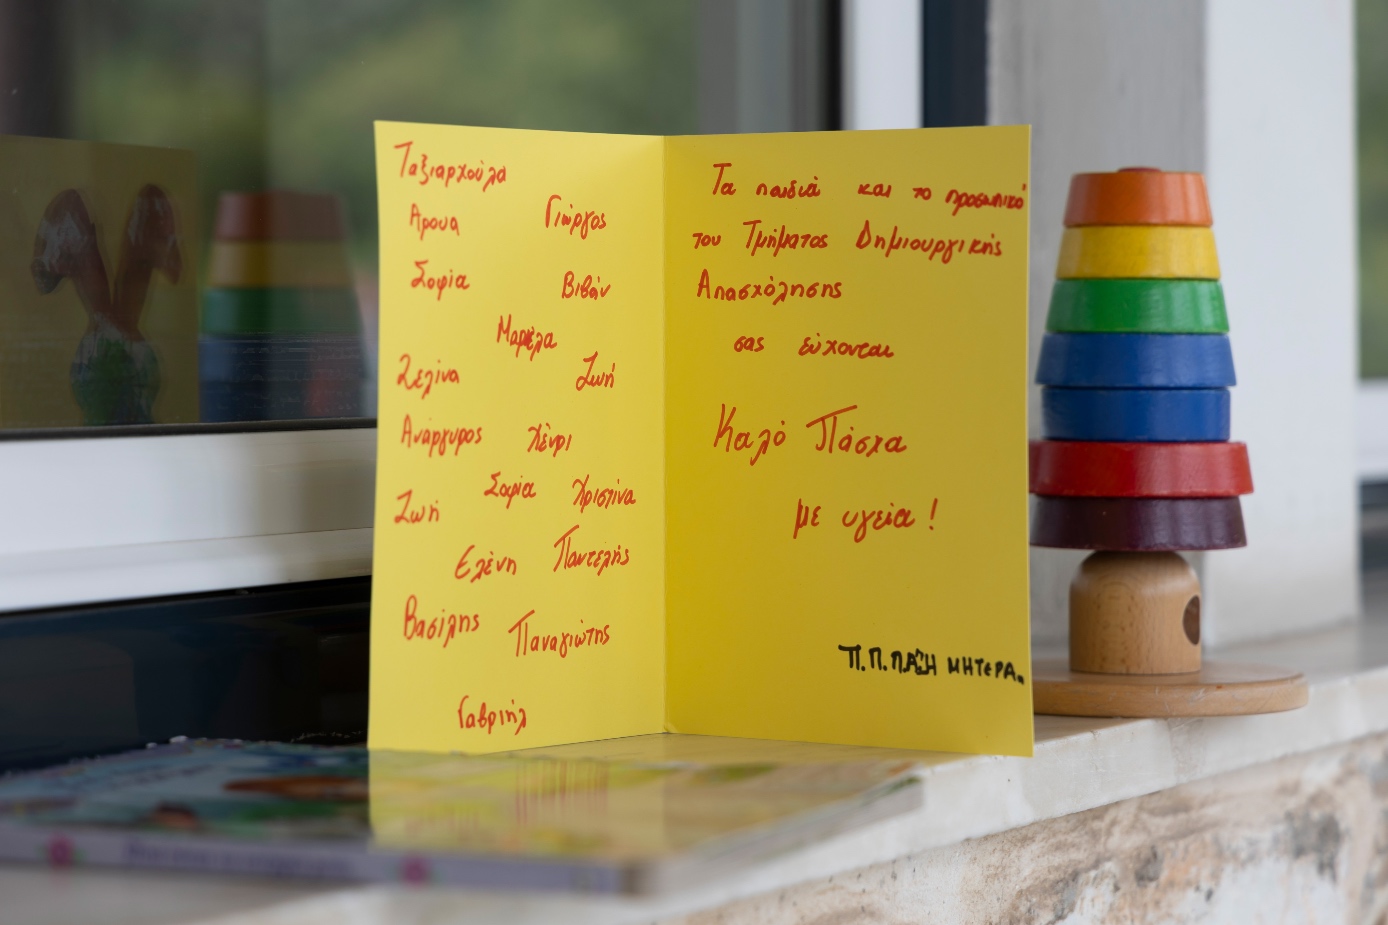 Ταξιαρχούλα
Αρουα
Γιώργος
Σοφία
Βιβάν
Μαριέλα
Σελίνα
Ζωή
Ανάργυρος
Χένρι
Σοφία
Χριστίνα
Ζωή
Ελένη
Παντελής
Βασίλης
Παναγιώτης
Γαβριήλ
Τα παιδιά και το προσωπικό
του Τμήματος Δημιουργικής
Απασχόλησης
σας εύχονται
Καλό Πάσχα
με υγεία!
Π.Π. ΜΗΤΕΡΑ